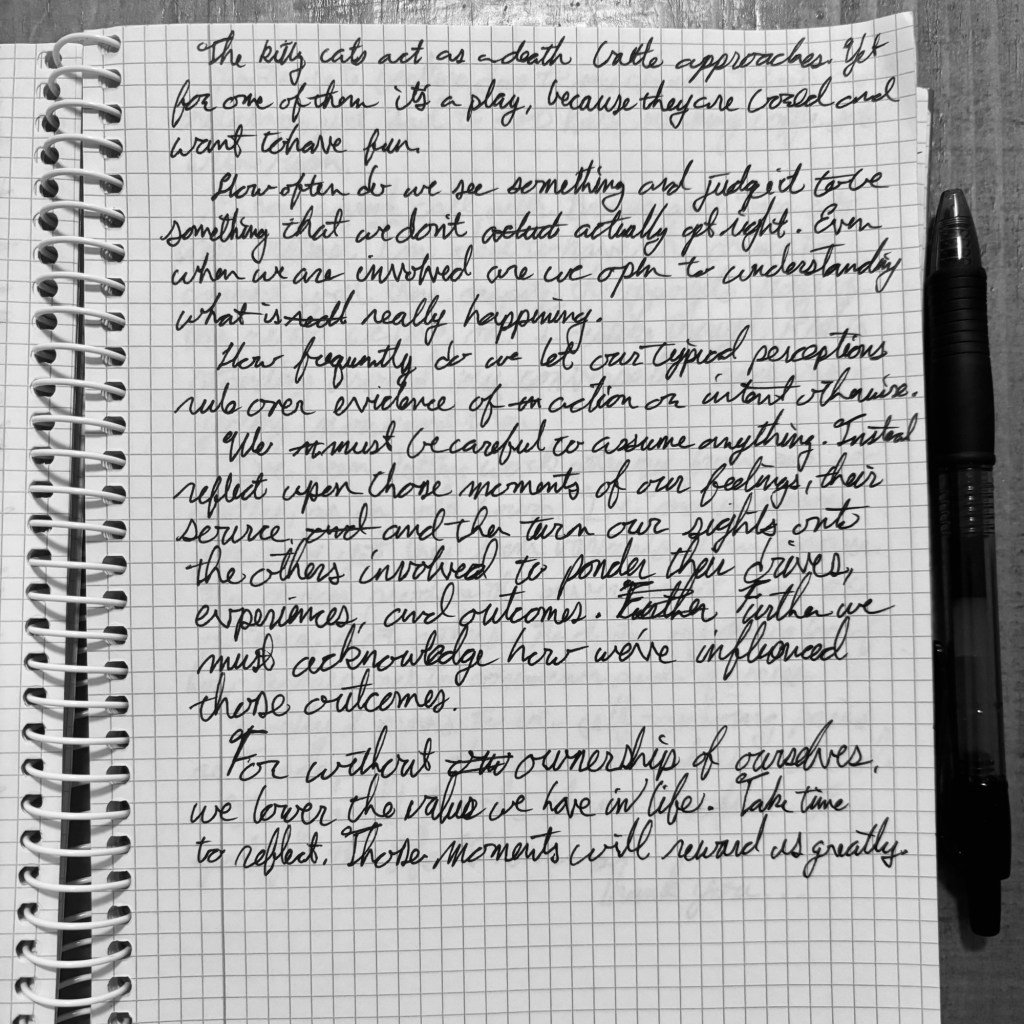 The kitty cats act as a death battle approaches. Yet
for one of them it's a play, because they are bored and
want to have fun.
How often do we see something and judge it to be
something that we don't actually get right. Even
when we are involved are we open to understanding
what is really happining.
How frequently do we let our typical perceptions
rule over evidence of action or intent otherwise.
We must be careful to assume anything. Instead
reflect upon those moments of our feelings, their
source and then turn our sights onto
the others involved to ponder their drives,
experiences, and outcomes. Further Further we
must acknowledge how we've influenced
those outcomes.
For without ownership of ourselves,
we lower the value we have in life. Take time
to reflect. Those moments will reward us greatly.